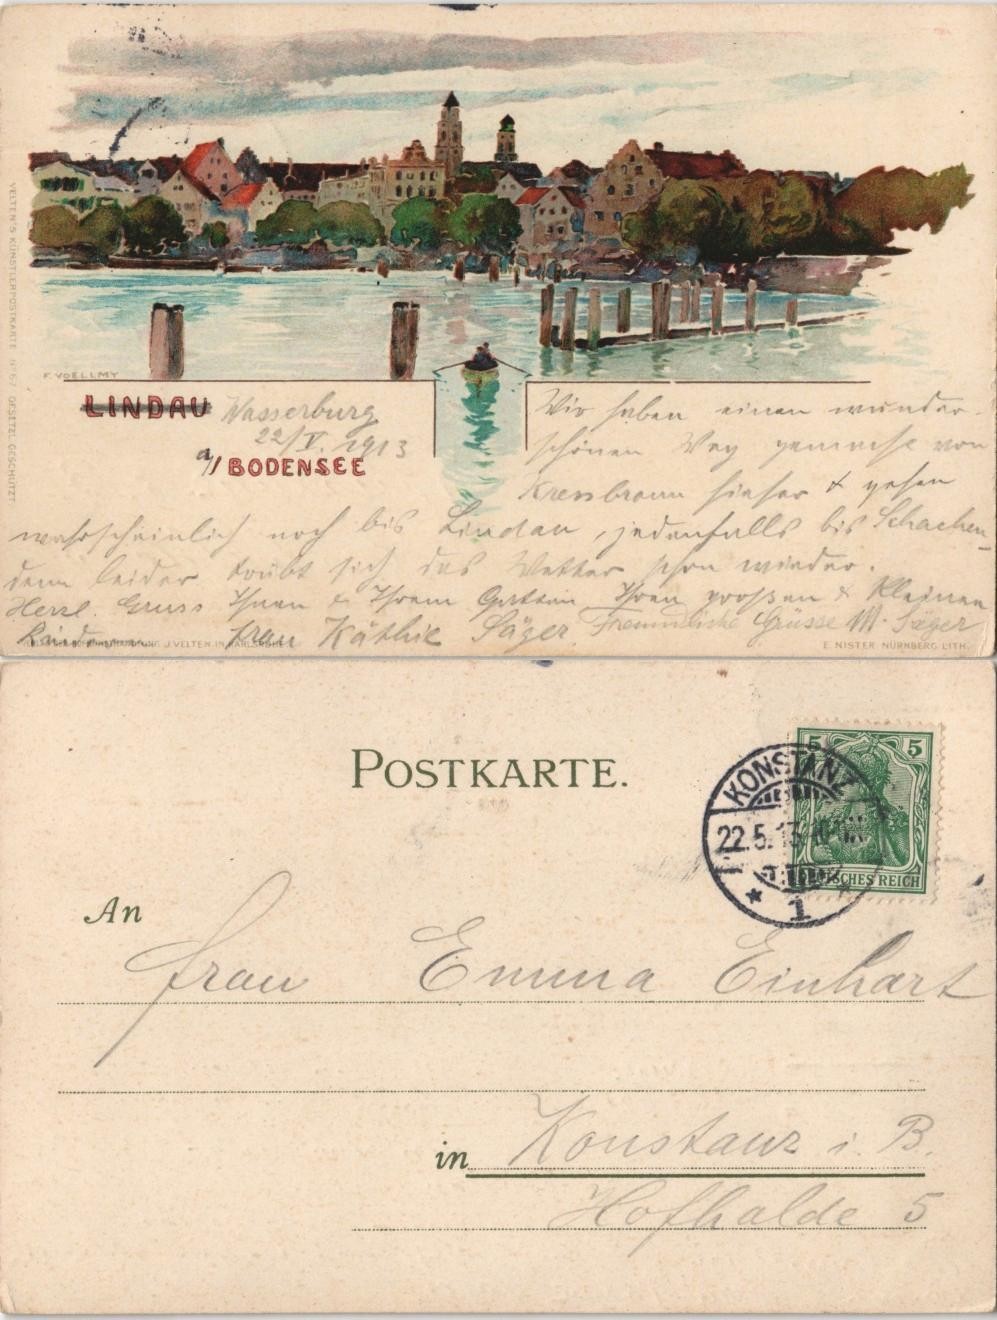 VELTEN'S KÜNSTLERPOSTKARTE No 67 GESETZL. GESCHÜTZT
F. VOELLMY
LINDAU Wasserburg
22/V. 1913
a/ BODENSEE
Wir haben einen wunder-
schönen Weg gemacht von
Kressbronn hieher & gehen
wahrscheinlich noch bis Lindau, jedenfalls bis Schachen,
denn leider trübt sich das Wetter schon wieder.
Herzl. Gruss Ihnen & Ihrem Gatten Ihren grossen & kleinen
Kindern Frau Käthie Säger Freundliche Grüsse M. Säger
J. VELTEN IN KARLSRUHE
E. NISTER NÜRNBERG LITH.
POSTKARTE.
5 5
DEUTSCHES REICH
KONSTANZ
22.5.13
1
An
Frau Emma Einhart
in Konstanz i. B.
Hofhalde 5